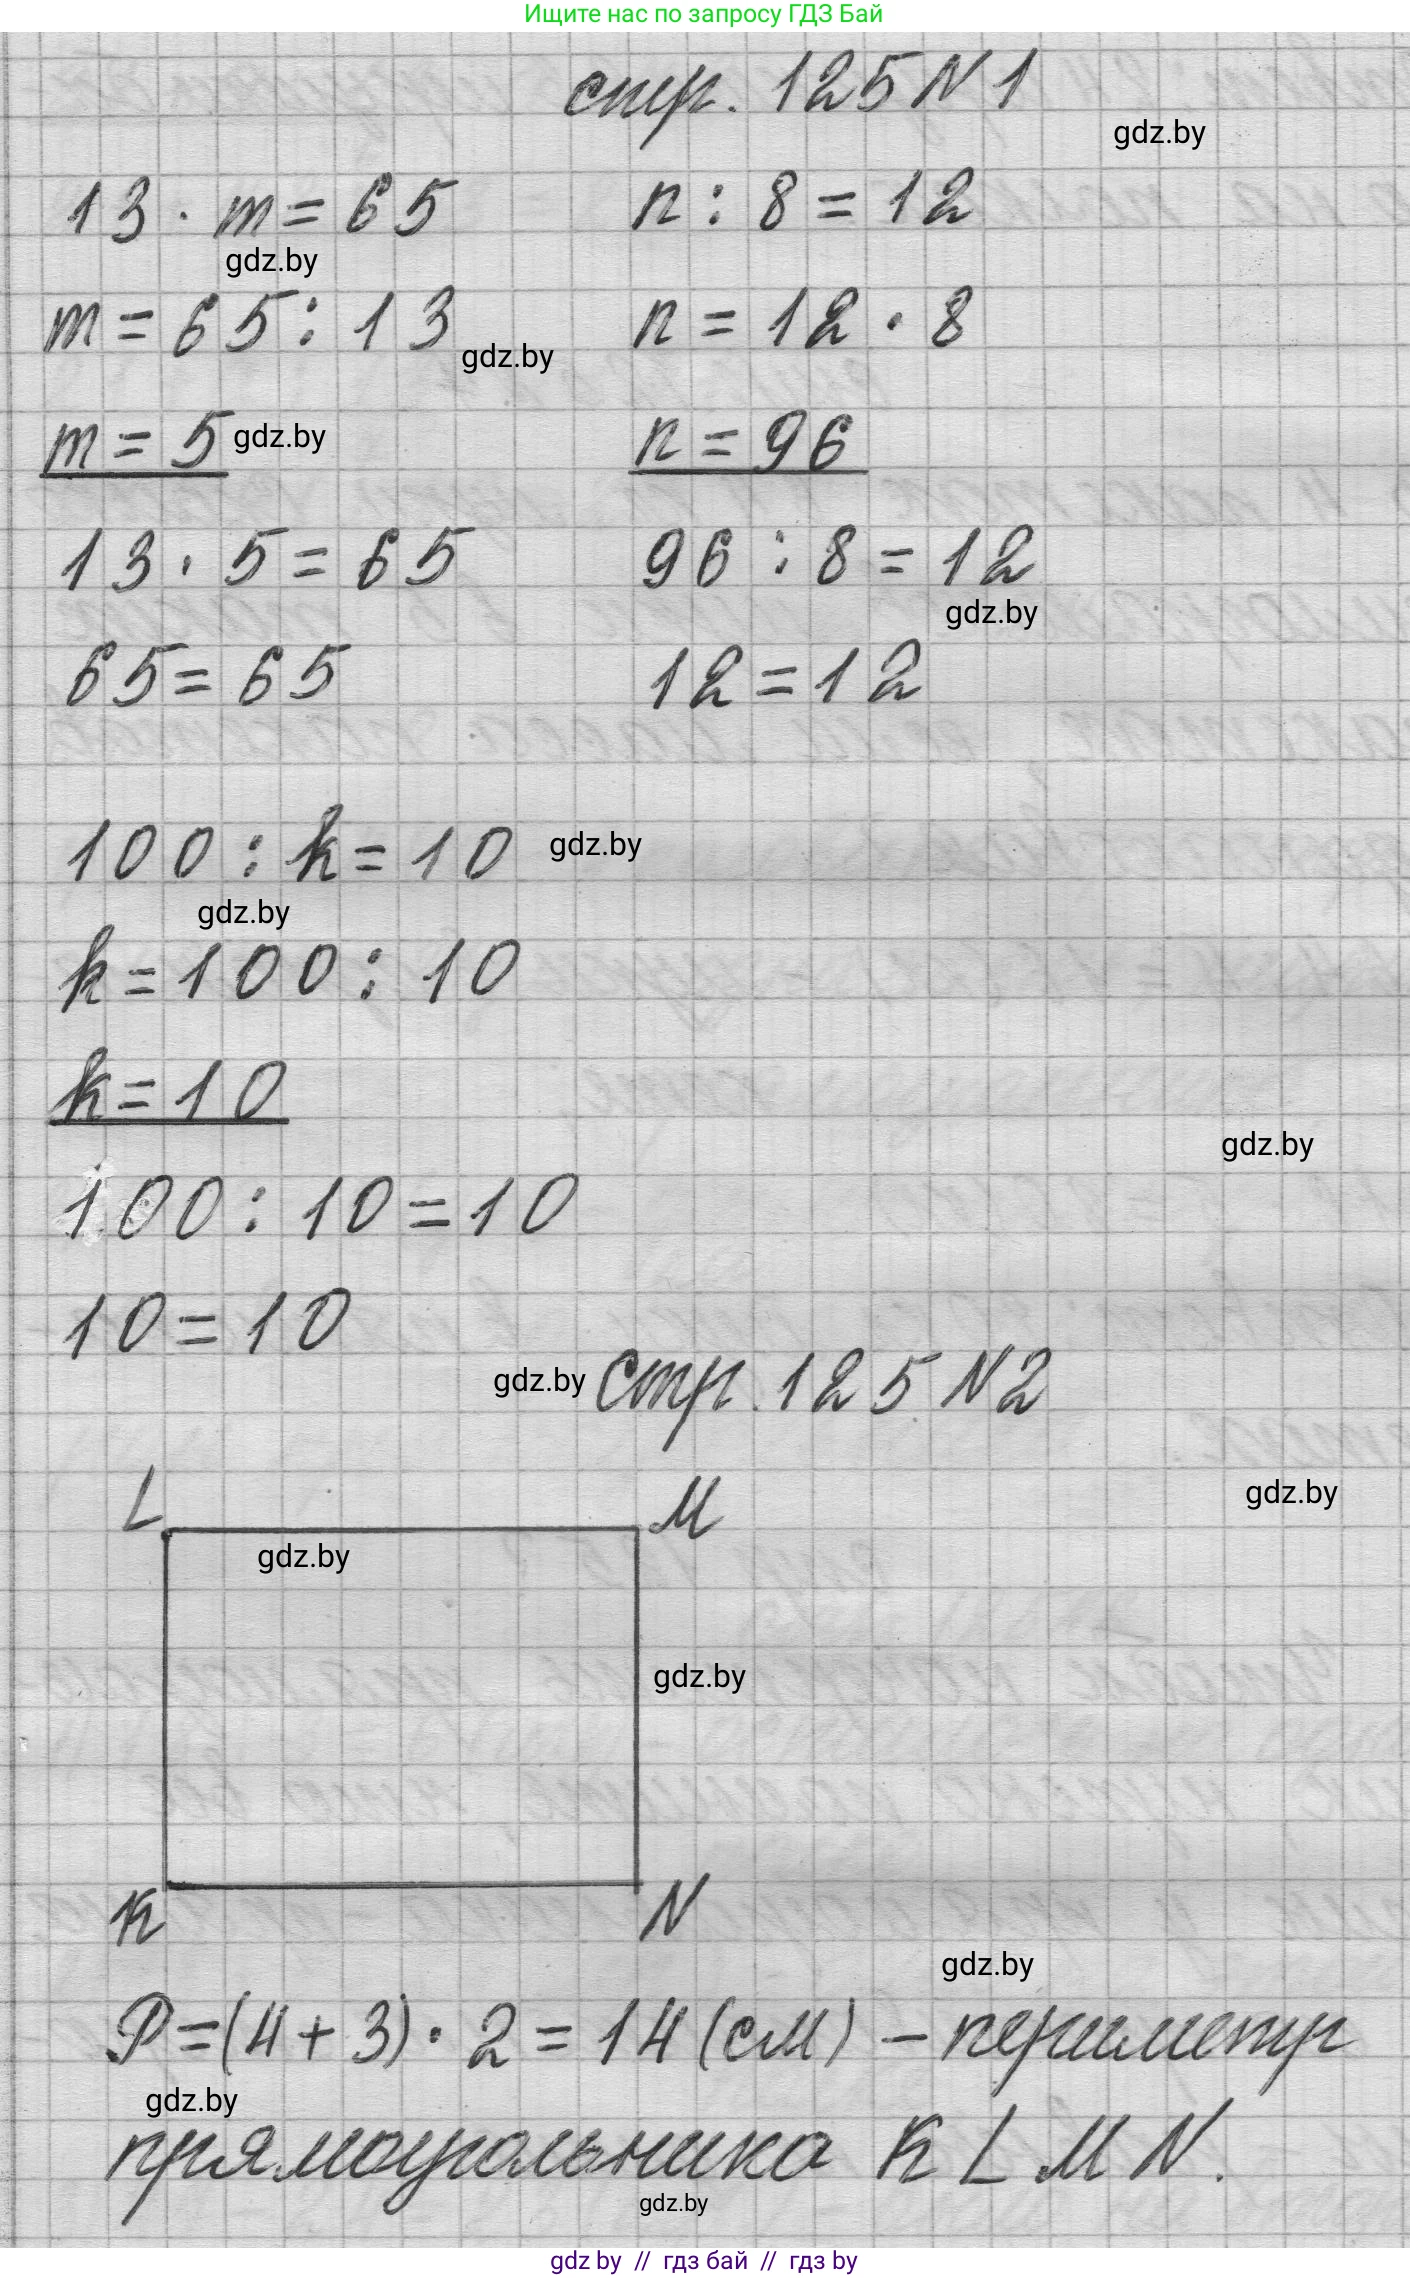 Ищите нас по запросу ГДЗ Бай
стр. 125 N 1
gdz.by
13 · m = 65
n : 8 = 12
gdz.by
m = 65 : 13
gdz.by
n = 12 · 8
m = 5
gdz.by
n = 96
13 · 5 = 65
96 : 8 = 12
gdz.by
65 = 65
12 = 12
100 : k = 10
gdz.by
gdz.by
k = 100 : 10
k = 10
gdz.by
100 : 10 = 10
10 = 10
gdz.by
Стр. 125 N2
L
M
gdz.by
gdz.by
gdz.by
K
N
gdz.by
P = (4 + 3) · 2 = 14 (см) – периметр
gdz.by
прямоугольника K L M N.
gdz.by
gdz by // гдз бай // гдз by